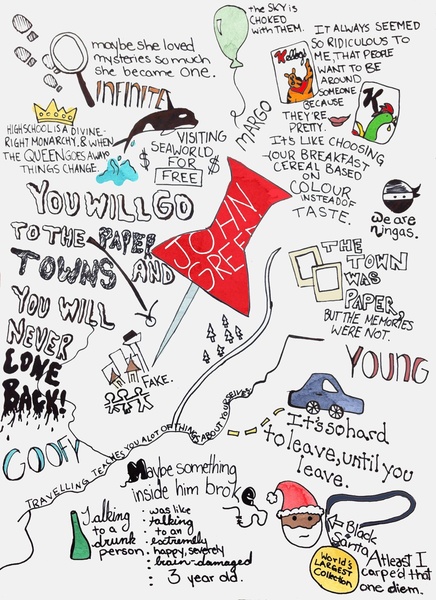 the SKY IS
CHOKED
with THEM.
MARGO
maybe she loved
mysteries so much
she became one.
INFINITE
IT ALWAYS SEEMED
SO RIDICULOUS TO
ME, THAT PEOPLE
WANT TO BE
AROUND
SOMEONE
BECAUSE
THEY'RE
PRETTY.
IT'S LIKE CHOOSING
YOUR BREAKFAST
CEREAL BASED
ON
COLOUR
INSTEAD OF
TASTE.
K
HIGHSCHOOL IS A DIVINE-
RIGHT MONARCHY, & WHEN
THE QUEEN GOES AWAY
THINGS CHANGE.
VISITING
$ SEAWORLD $
FOR
FREE
we are
ningas.
YOU WILL GO
TO THE PAPER
TOWNS AND
YOU WILL
NEVER
COME
BACK!
JOHN
GREEN
THE
TOWN
WAS
PAPER,
BUT THE MEMORIES
WERE NOT.
YOUNG
FAKE.
GOOFY
TRAVELLING TEACHES YOU A LOT OF THINGS ABOUT YOURSELVES
It's so hard
to leave, until you
leave.
Maybe something
inside him broke
Talking
to a
drunk
person
was like
talking
to an
extremely
happy, severely
brain-damaged
3 year old.
Black
Santa
WORLD'S
LARGEST
Collection
Atleast I
carpe'd that
one diem.